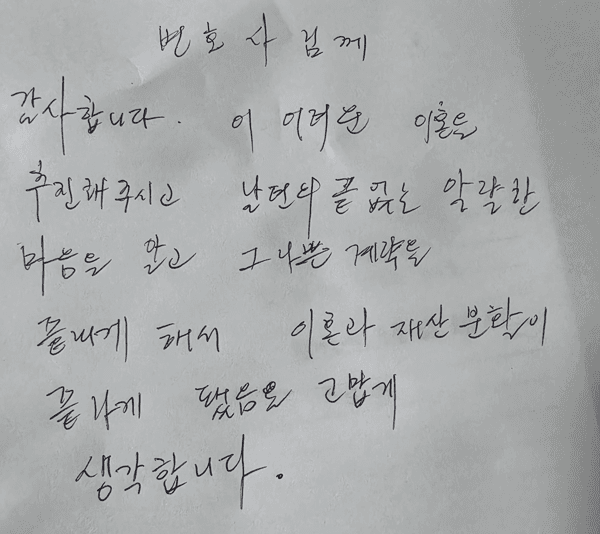 변호사님께
감사합니다. 이 어려운 이혼을
추진해주시고 남편의 끝없는 악랄한
마음을 알고 그 나쁜 계략을
끝나게 해서 이혼과 재산분할이
끝나게 됐음을 고맙게
생각합니다.